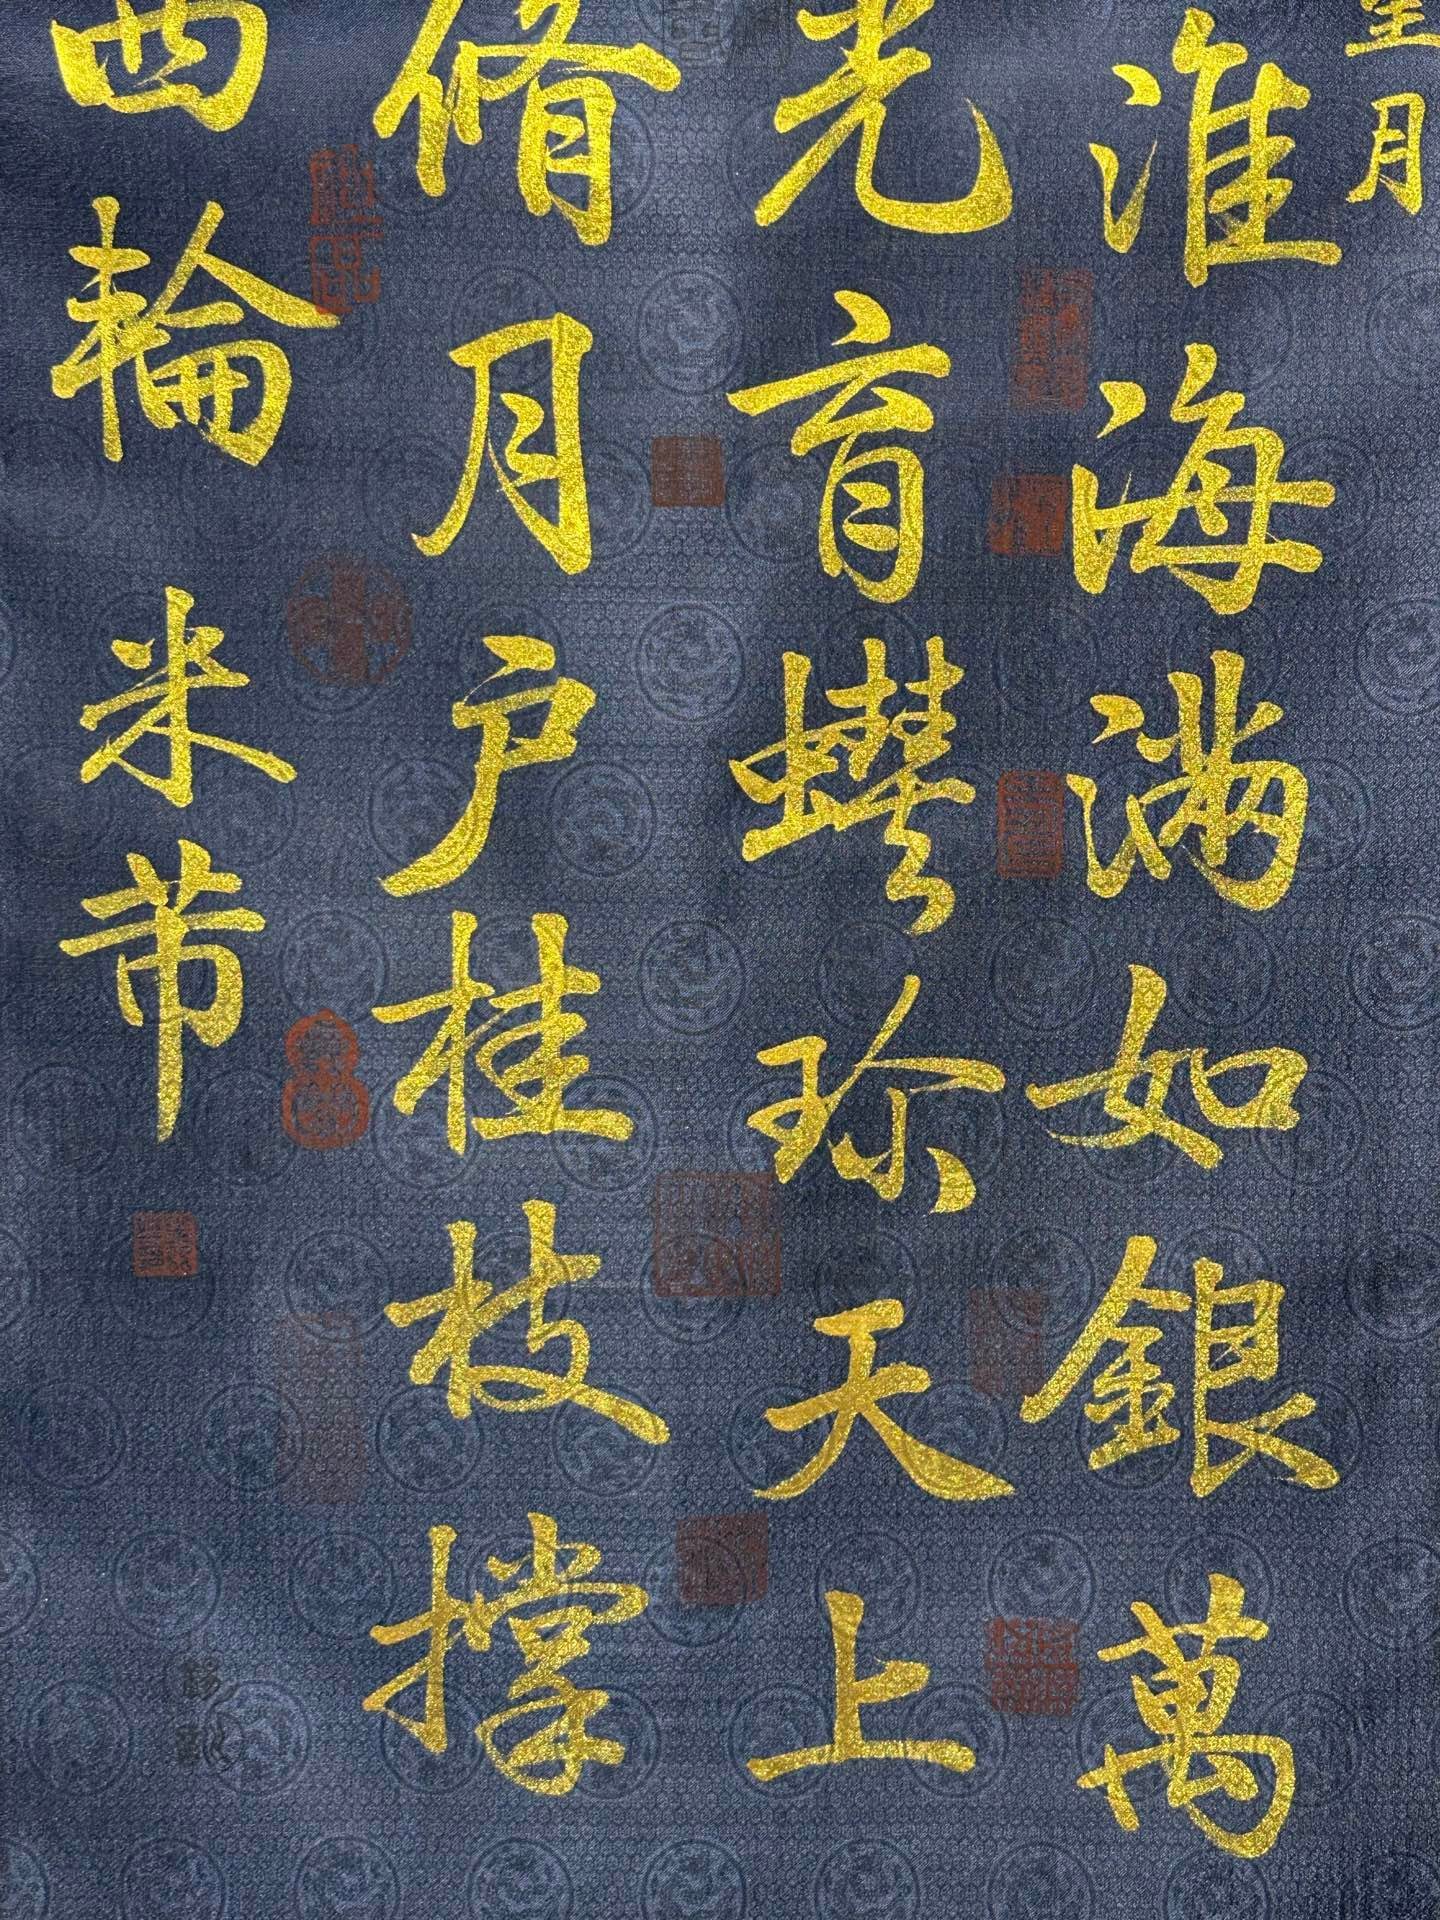 月
淮海滿如銀萬
光育蚌珍天上
脩月户桂枝撐
西輪 米芾